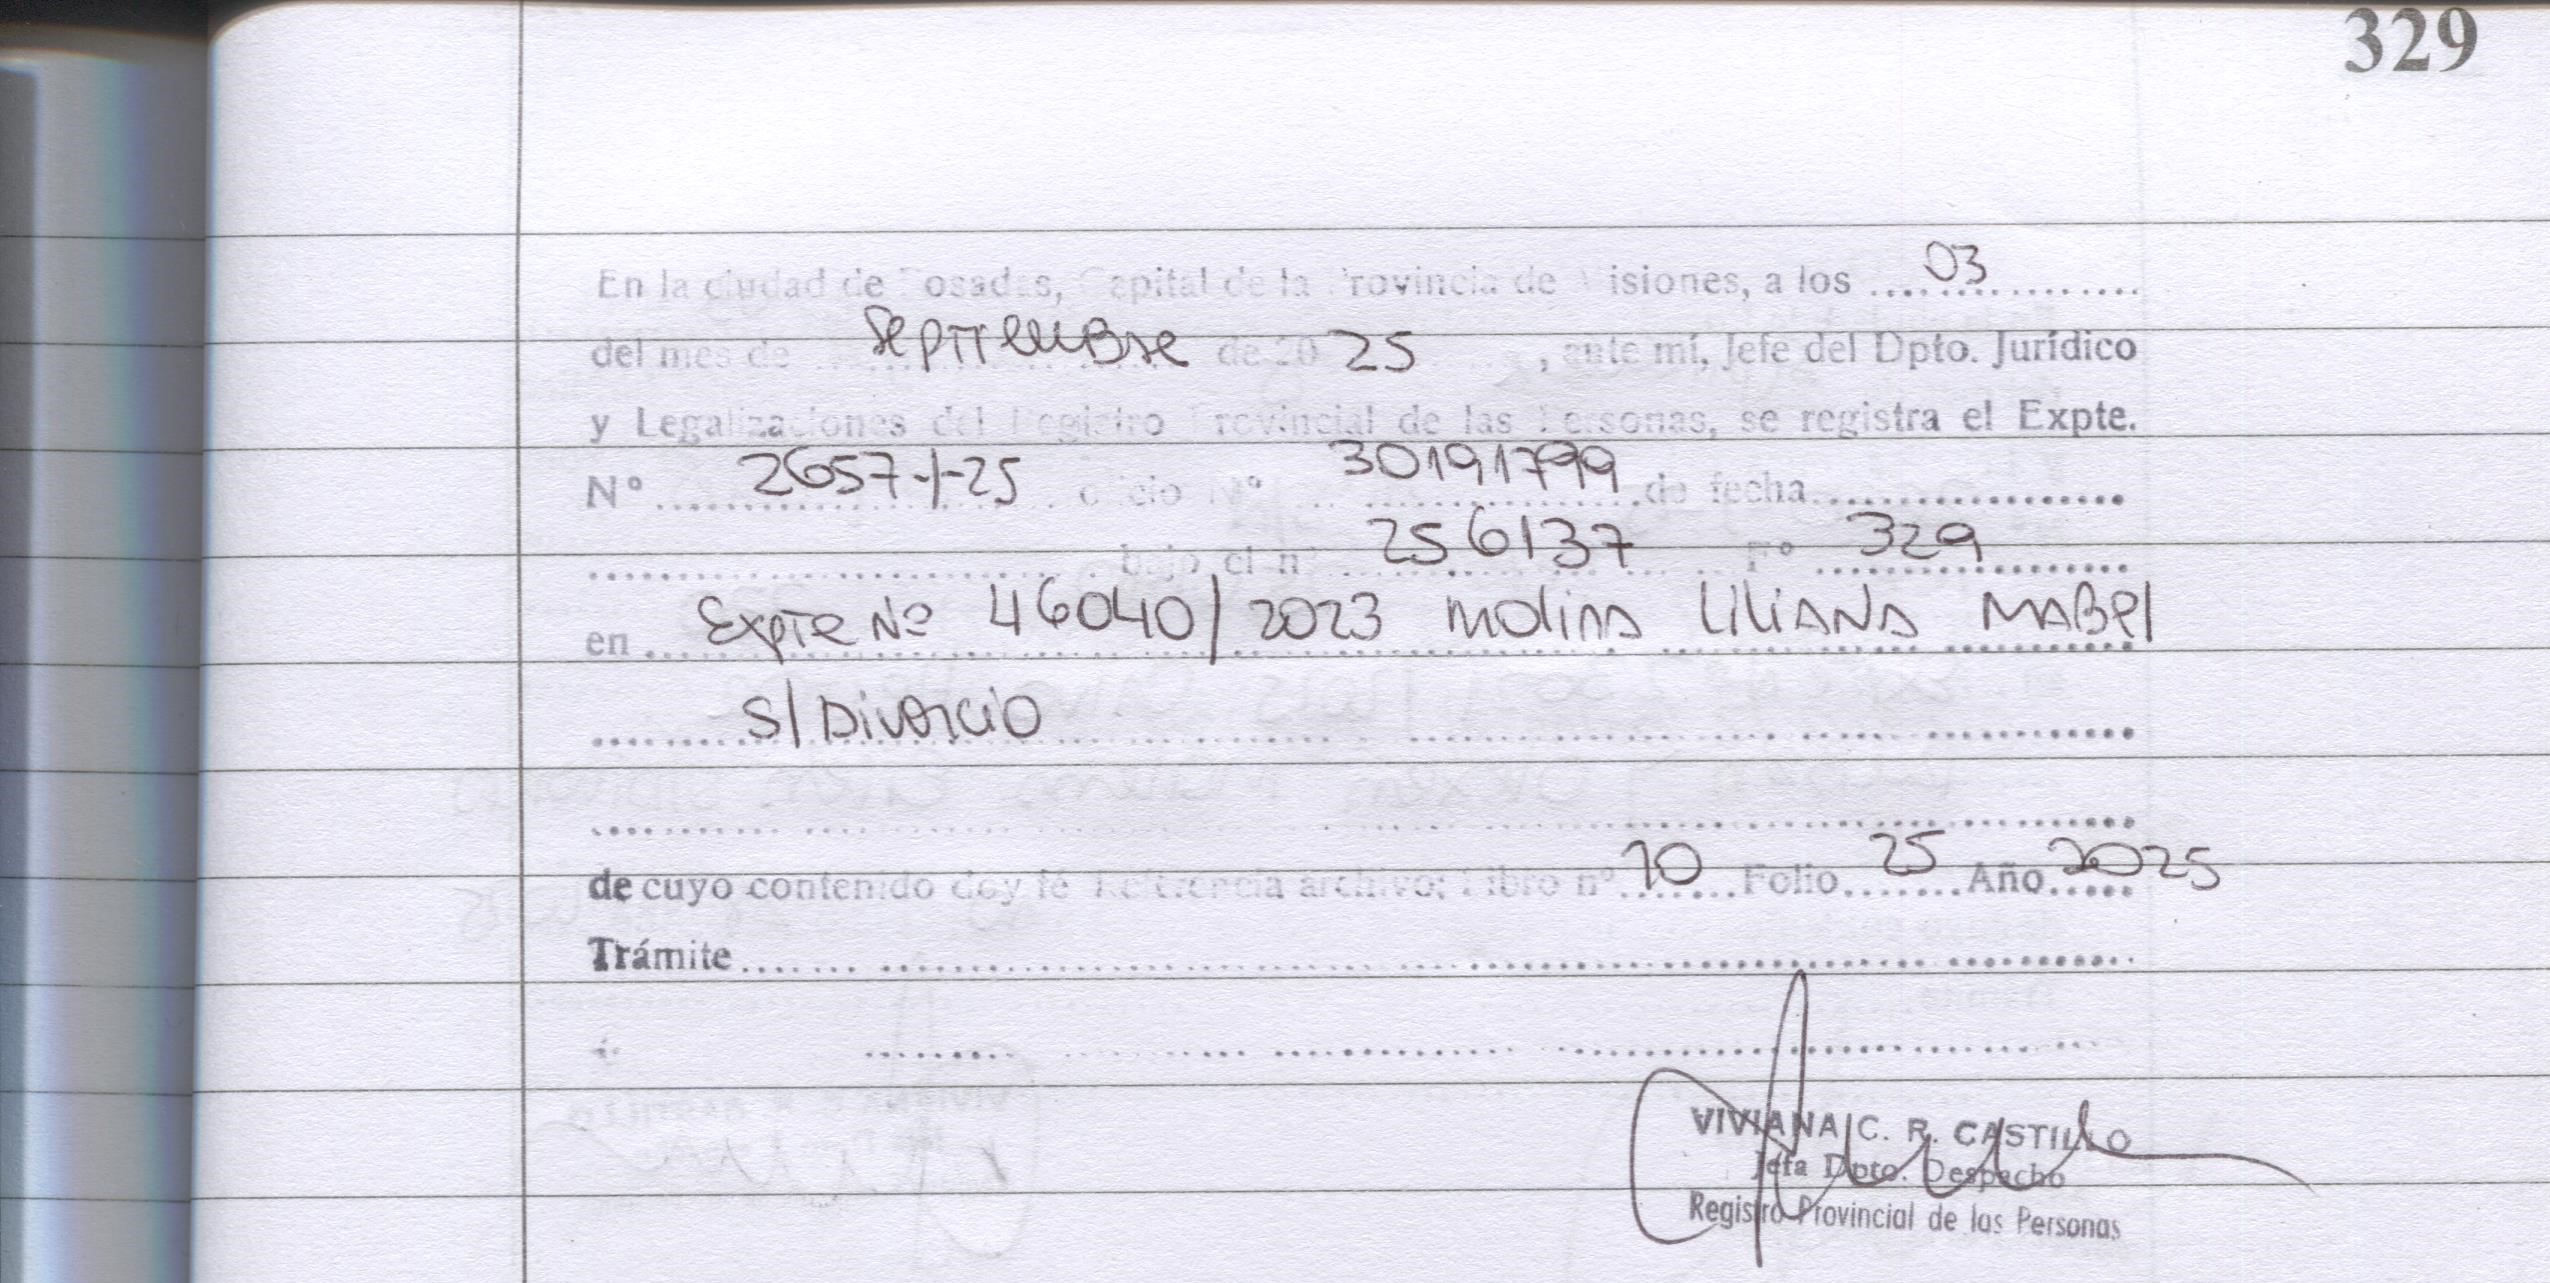 329
En la ciudad de Posadas, Capital de la Provincia de Misiones, a los 03
del mes de Septiembre de 2025, ante mí, Jefe del Dpto. Jurídico
y Legalizaciones del Registro Provincial de las Personas, se registra el Expte.
N° 2657-/-25 oficio N° 30191799 de fecha
bajo el n° 256137 F° 329
en Expte Nº 46040/2023 Molina Liliana Mabel
S/ Divorcio
de cuyo contenido doy fé Referencia archivo: Libro n° 10 Folio 25 Año 2025
Trámite
VIVIANA C. R. CASTILLO
Jefa Dpto. Despacho
Registro Provincial de las Personas